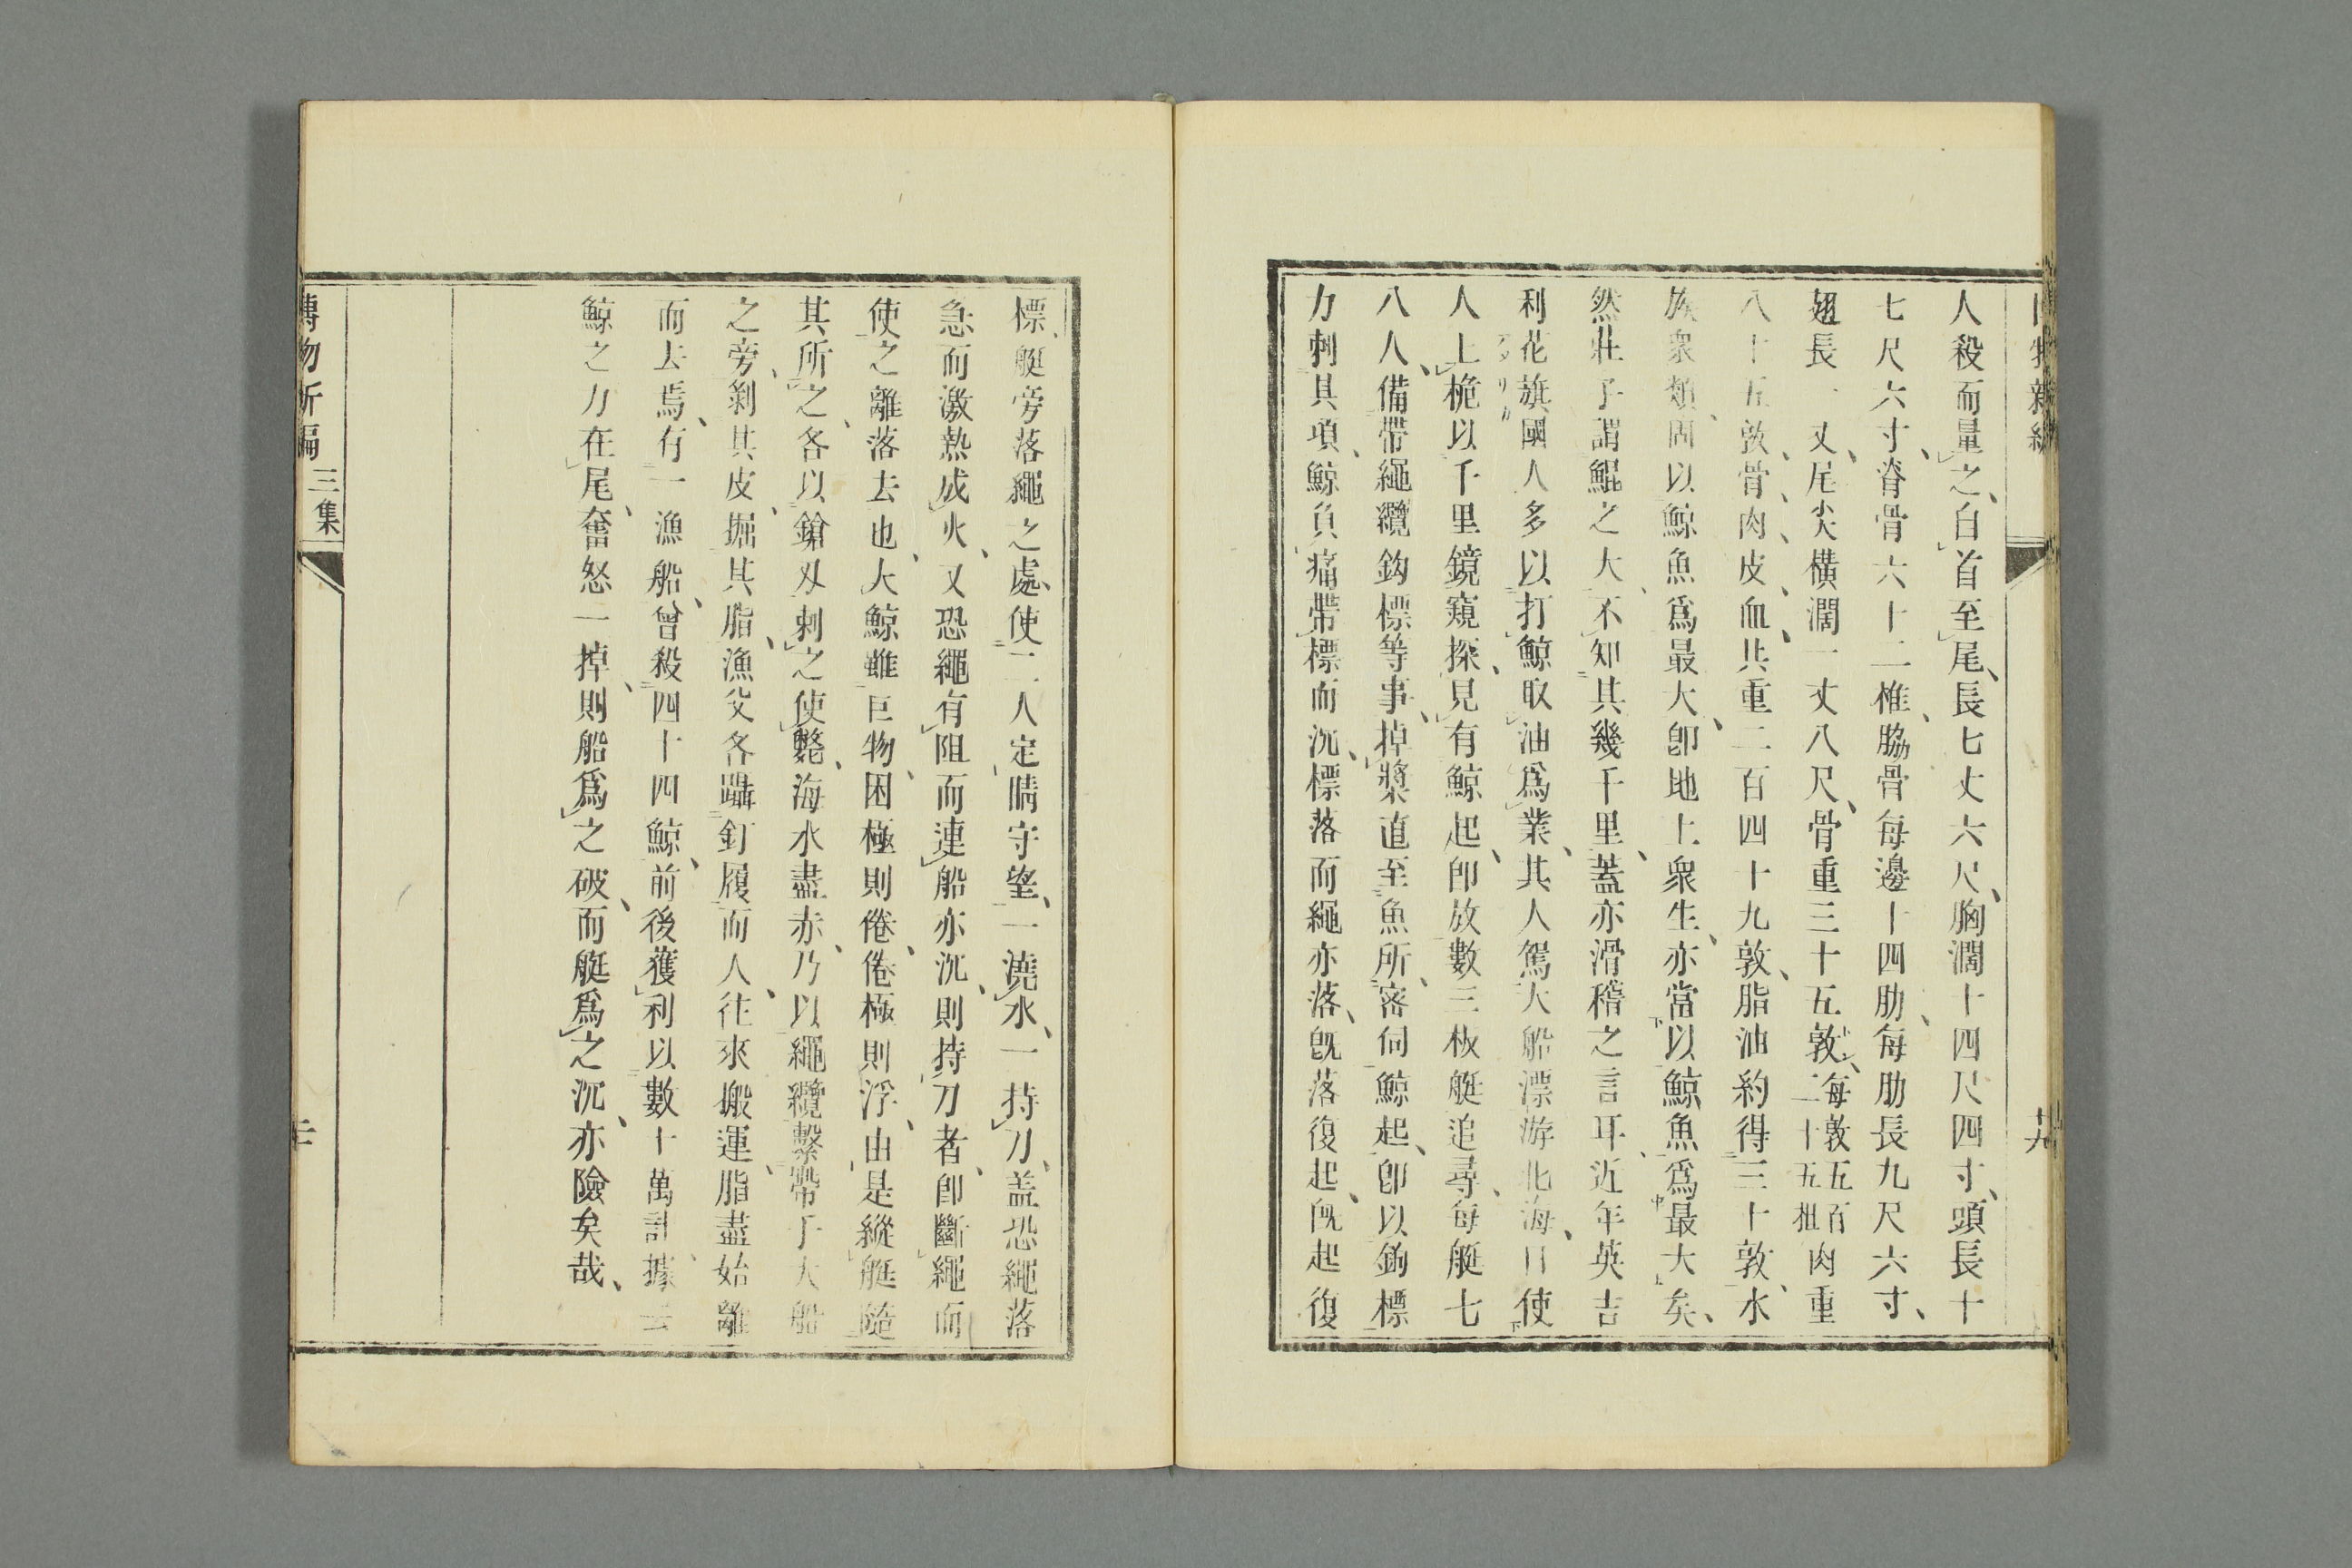 人殺而量之、自首至尾、長七丈六尺、胸濶十四尺四寸、頭長十
七尺六寸、脊骨六十二椎、脇骨每邊十四肋、每肋長九尺六寸、
翅長一丈、尾尖横濶一丈八尺、骨重三十五敦、每敦五百二十五觔肉重
八十五敦、骨、肉、皮、血、共重二百四十九敦、脂油約得三十敦、水
族衆類、固以鯨魚爲最大、卽地上衆生、亦當以鯨魚爲最大矣、
然莊子謂鯤之大、不知其幾千里、蓋亦滑稽之言耳、近年英吉
利花旗國人多以打鯨取油爲業、其人駕大船漂游北海、日使
人上桅以千里鏡窺探、見有鯨起、卽放數三板艇追尋、每艇七
八人、備帶繩纜鈎標等事、掉槳直至魚所、密伺鯨起、卽以鈎標
力刺其項、鯨負痛帶標而沉、標落而繩亦落、旣落復起、旣起復
十九
標、艇旁落繩之處、使二人定睛守望、一澆水、一持刀、盖恐繩落
急而激熱成火、又恐繩有阻而連船亦沉、則持刀者、卽斷繩而
使之離落去也、大鯨雖巨物、困極則倦、倦極則浮、由是縱艇隨
其所之、各以鎗刄刺之使斃、海水盡赤、乃以繩纜繫帶于大船
之旁、剝其皮、掘其脂、漁父各躡釘履而人往來搬運、脂盡始離
而去焉、有一漁船、曾殺四十四鯨、前後獲利以數十萬計、據云
鯨之力在尾、奮怒一掉、則船爲之破、而艇爲之沉、亦險矣哉、
博物新編 三集
二十